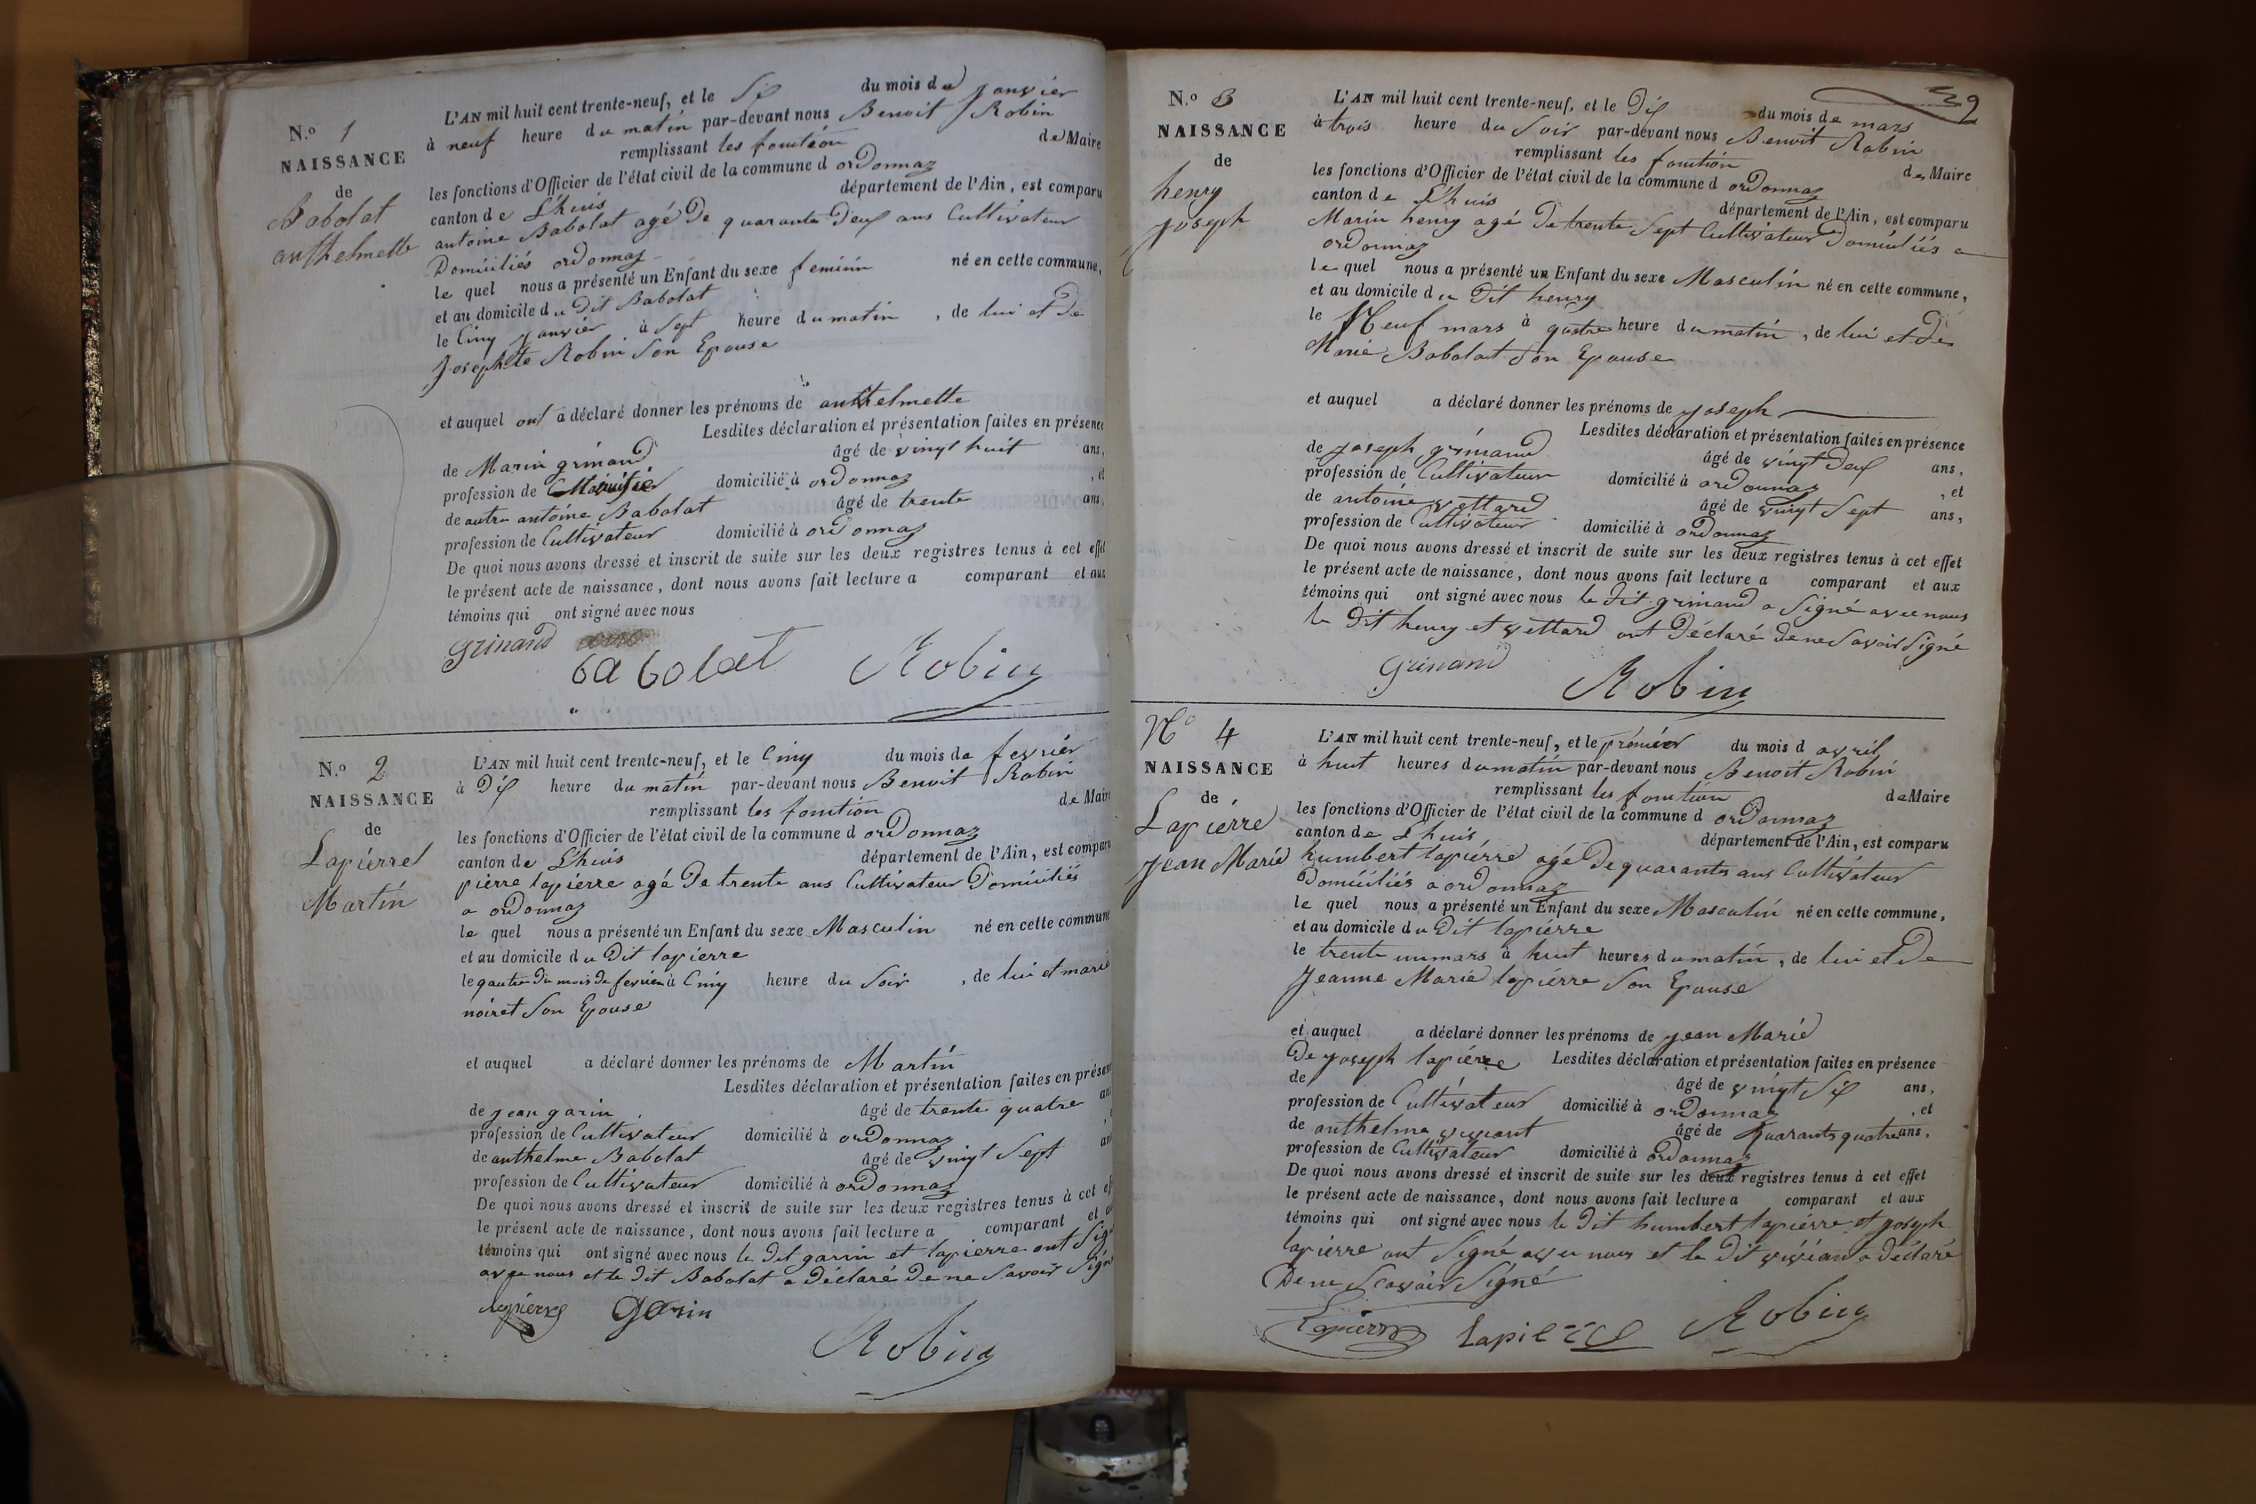 N.o 1
NAISSANCE
de
Babolat
anthelmette
L'AN mil huit cent trente-neuf, et le Six du mois de janvier
à neuf heure du matin par-devant nous Benoit Robin
remplissant les fonction de Maire
les fonctions d'Officier de l'état civil de la commune d ordonnaz
canton de L'huis département de l'Ain, est comparu
antoine Babolat agé De quarante Deux ans Cultivateur
Domiciliés ordonnaz
le quel nous a présenté un Enfant du sexe feminin né en cette commune,
et au domicile du Dit Babolat
le Cinq janvier à Sept heure du matin , de lui et de
josephte Robin Son Epouse
et auquel ont a déclaré donner les prénoms de anthelmette
Lesdites déclaration et présentation faites en présence
de Marin grinand âgé de vingt huit ans,
profession de domicilié à ordonnaz , et
de autre antoine Babolat âgé de trente ans,
profession de Cultivateur domicilié à ordonnaz
De quoi nous avons dressé et inscrit de suite sur les deux registres tenus à cet effet
le présent acte de naissance, dont nous avons fait lecture a comparant et aux
témoins qui ont signé avec nous
grinand
babolat Robin
N.o 2
NAISSANCE
de
Lapierre
Martin
L'AN mil huit cent trente-neuf, et le Cinq du mois de fevrier
à Dix heure du matin par-devant nous Benoit Robin
remplissant les fonction de Maire
les fonctions d'Officier de l'état civil de la commune d ordonnaz
canton de L'huis département de l'Ain, est comparu
pierre lapierre agé De trente ans Cultivateur Domiciliés
a ordonnaz
le quel nous a présenté un Enfant du sexe Masculin né en cette commune
et au domicile du Dit lapierre
le quatre Du mois De fevrier à Cinq heure du Soir , de lui et marie
noiret Son Epouse
et auquel a déclaré donner les prénoms de Martin
Lesdites déclaration et présentation faites en présen
de jean garin âgé de trente quatre an
profession de Cultivateur domicilié à ordonnaz
de anthelme Babolat âgé de vingt Sept an
profession de Cultivateur domicilié à ordonnaz
De quoi nous avons dressé et inscrit de suite sur les deux registres tenus à cet ef
le présent acte de naissance, dont nous avons fait lecture a comparant et a
témoins qui ont signé avec nous le Dit garin et lapierre ont Sig
avec nous et le Dit Babolat a Déclaré De ne Savoir Signé
lapierre Garin
Robin
39
N.o 3
NAISSANCE
de
henry
joseph
L'AN mil huit cent trente-neuf, et le Dix du mois de mars
à trois heure du Soir par-devant nous Benoit Robin
remplissant les fonction de Maire
les fonctions d'Officier de l'état civil de la commune d ordonnaz
canton de L'huis département de l'Ain, est comparu
Marin henry agé De trente Sept Cultivateur Domiciliés a
ordonnaz
le quel nous a présenté un Enfant du sexe Masculin né en cette commune,
et au domicile du Dit henry
le Neuf mars à quatre heure du matin , de lui et De
Marie Babolat Son Epouse
et auquel a déclaré donner les prénoms de joseph
Lesdites déclaration et présentation faites en présence
de joseph grinand âgé de vingt Deux ans,
profession de Cultivateur domicilié à ordonnaz , et
de antoine vettard âgé de vingt Sept ans,
profession de Cultivateur domicilié à ordonnaz
De quoi nous avons dressé et inscrit de suite sur les deux registres tenus à cet effet
le présent acte de naissance, dont nous avons fait lecture a comparant et aux
témoins qui ont signé avec nous le Dit grinand a Signé avec nous
le Dit henry et vettard ont Déclaré de ne Savoir Signé
grinand
Robin
No 4
NAISSANCE
de
Lapierre
Jean Marie
L'AN mil huit cent trente-neuf, et le prémier du mois d avril
à huit heures du matin par-devant nous Benoit Robin
remplissant les fonction de Maire
les fonctions d'Officier de l'état civil de la commune d ordonnaz
canton de L'huis département de l'Ain, est comparu
humbert lapierre agé De quarante ans Cultivateur
Domiciliés a ordonnaz
le quel nous a présenté un Enfant du sexe Masculin né en cette commune,
et au domicile du Dit lapierre
le trente un mars à huit heures du matin , de lui et De
Jeanne Marie lapierre Son Epouse
et auquel a déclaré donner les prénoms de jean Marie
De joseph lapierre Lesdites déclaration et présentation faites en présence
de âgé de vingt Six ans,
profession de Cultivateur domicilié à ordonnaz , et
de anthelme âgé de quarante quatre ans,
profession de Cultivateur domicilié à ordonnaz
De quoi nous avons dressé et inscrit de suite sur les deux registres tenus à cet effet
le présent acte de naissance, dont nous avons fait lecture a comparant et aux
témoins qui ont signé avec nous le Dit humbert lapierre et joseph
lapierre ont Signé avec nous et le Dit vivian a déclaré
De ne Scavoir Signé
Lapierre Lapierre Robin